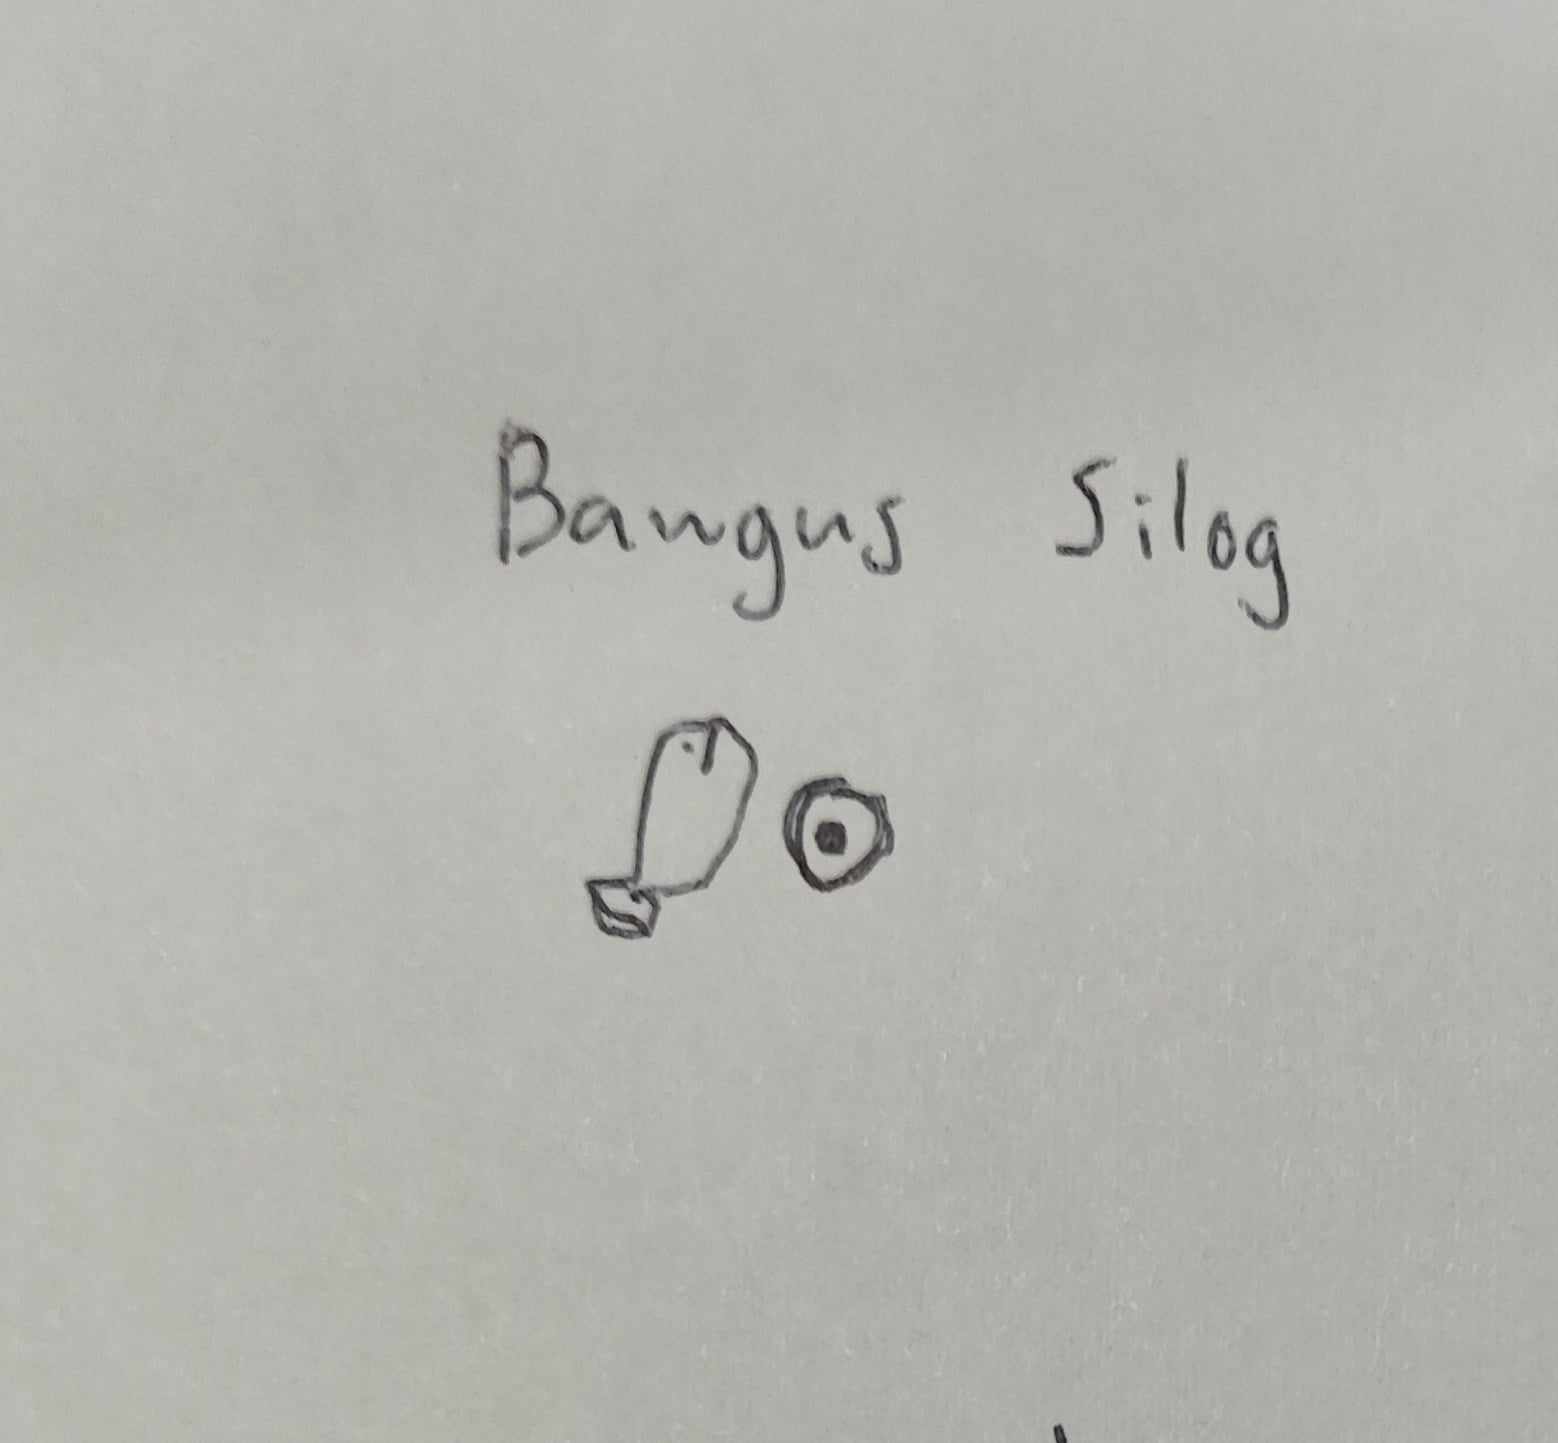 Bangus Silog